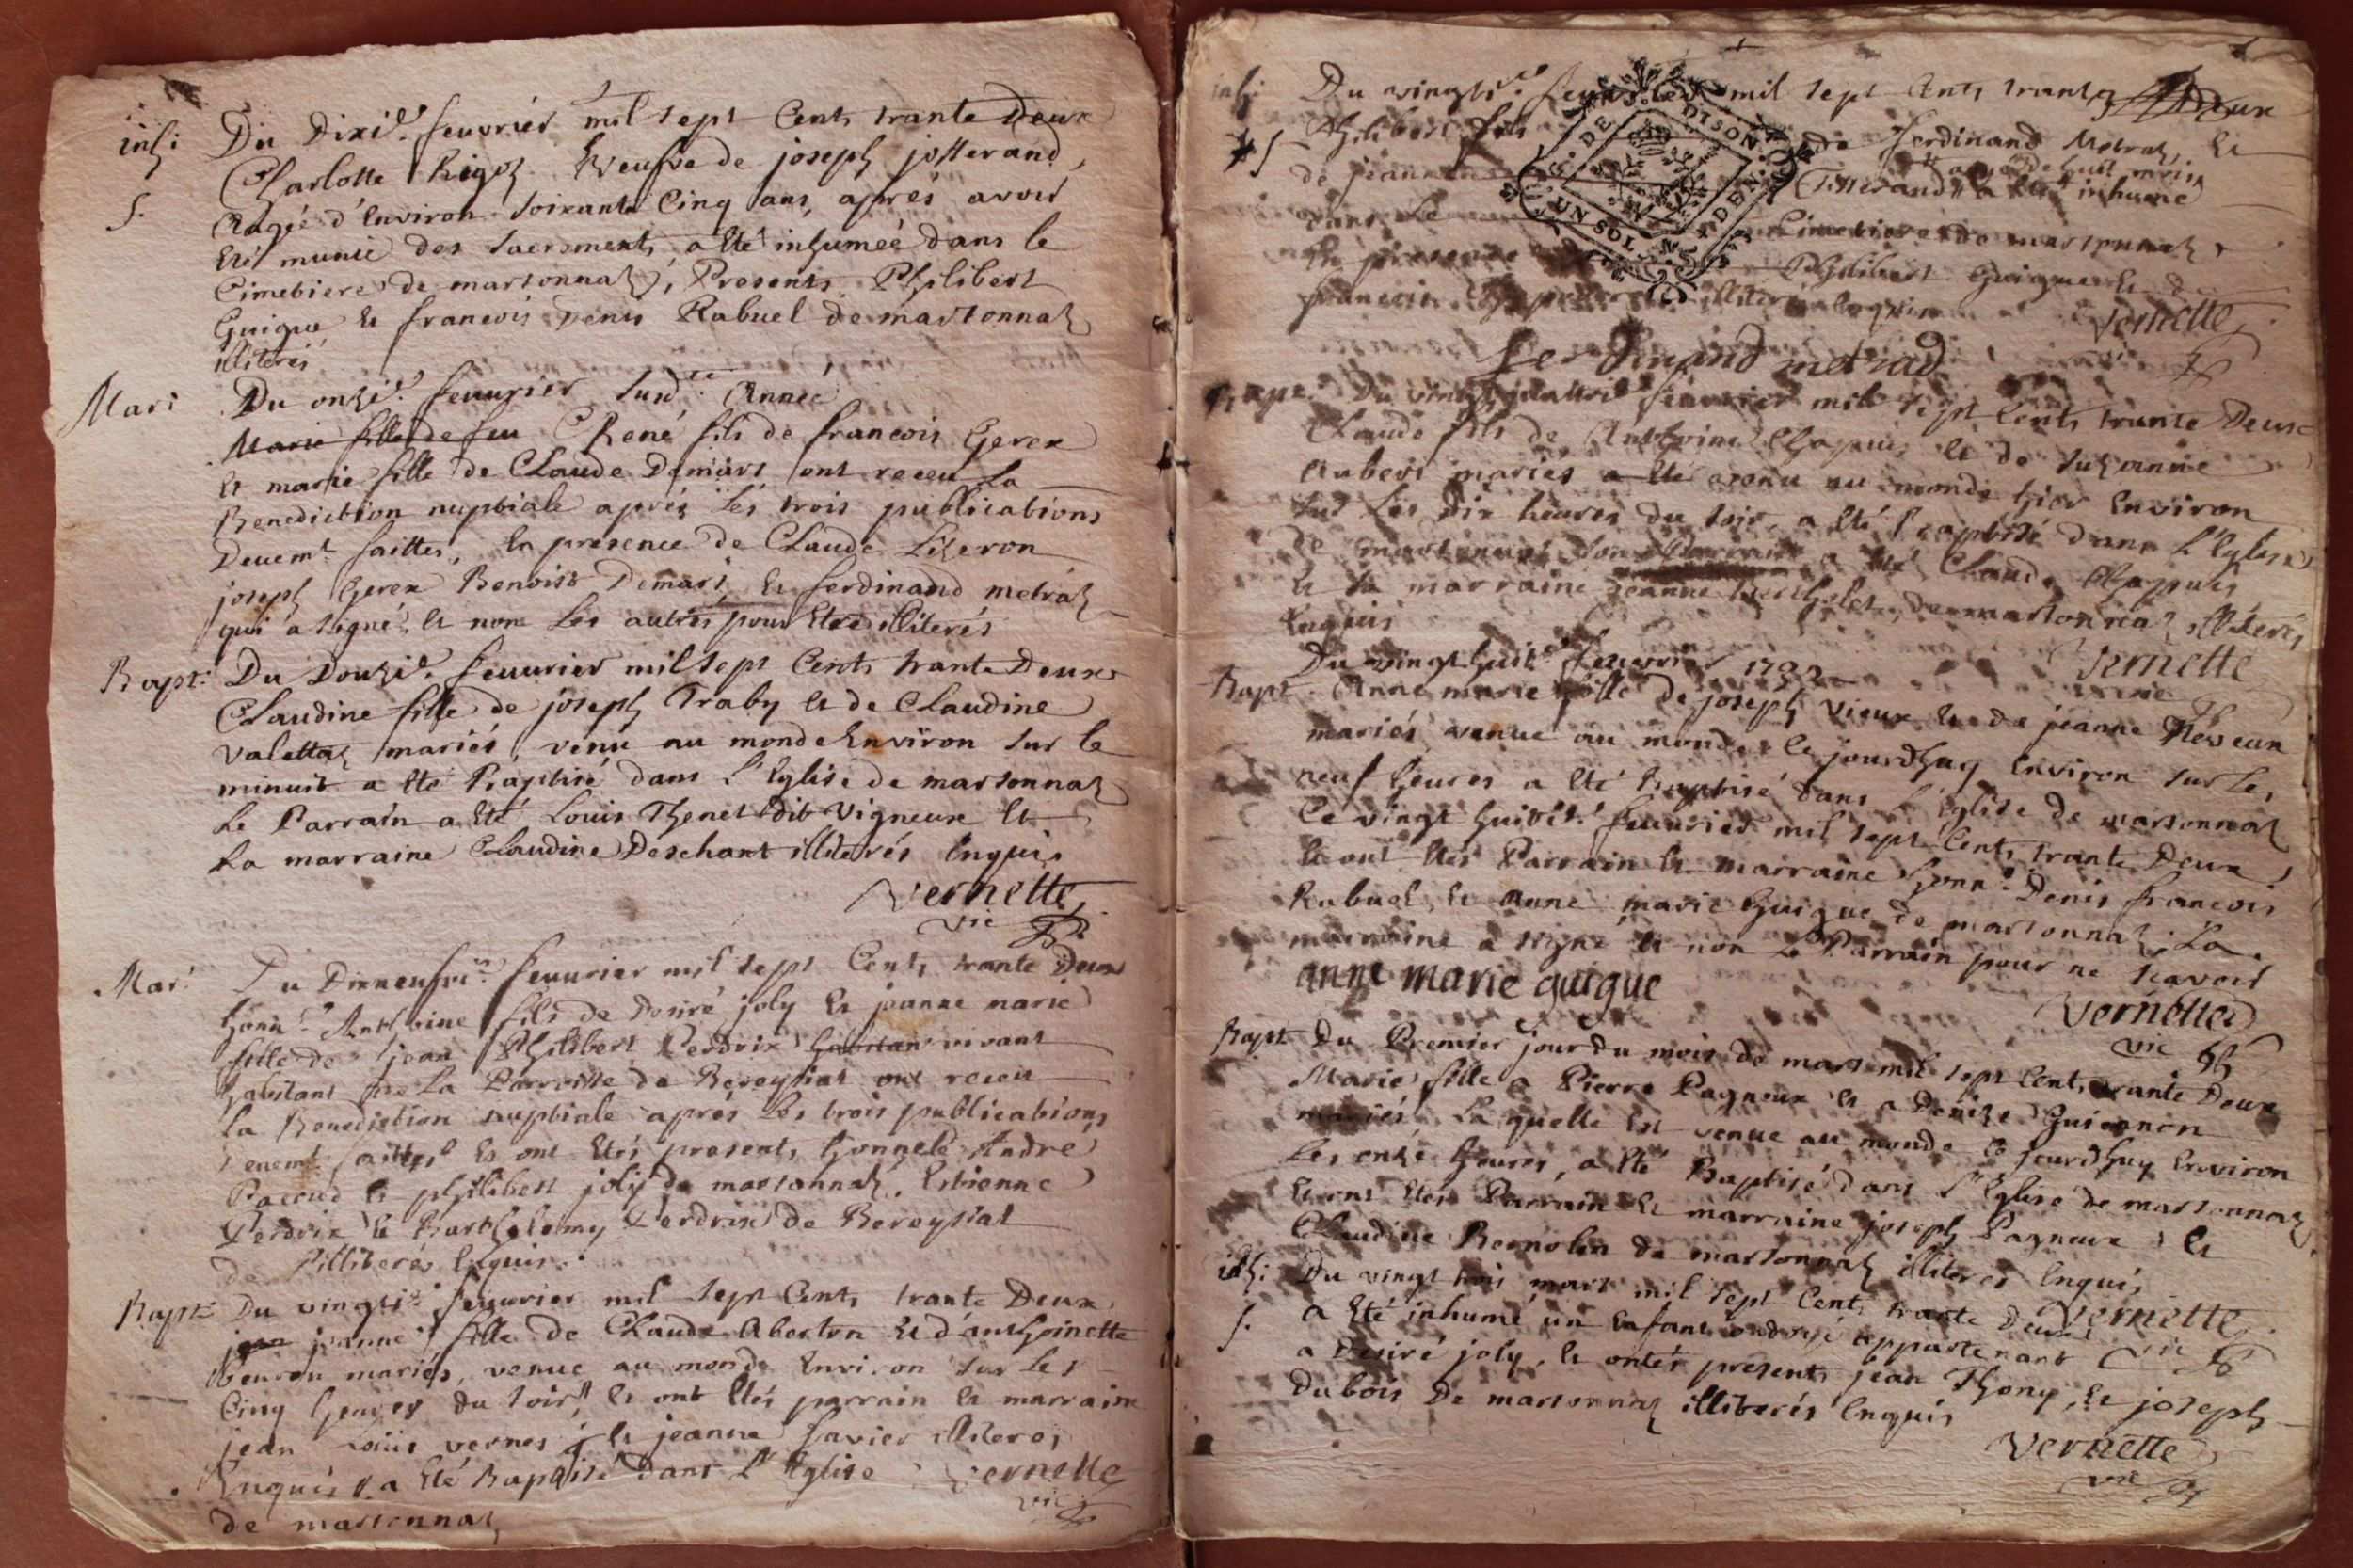 inh:
Du Dixie. feuvrier mil sept Cents trante Deux
Charlotte Rigoz Veufve de joseph josserand,
Aagée d'Environ soixante Cinq ans, aprés avoir
s.
Eté munie des sacrements, a eté inhumée dans le
Cimetiere de marsonnaz, Presents Philibert
Guigue et francois denis Rabuel de marsonnaz
illiterés
Mar:
Du onzie. feuurier sudte. Année
Marie fille de feu René fils de francois Gerex
et marie fille de Claude Demars ont receu La
Benediction nuptiale aprés Les trois publications
Deuemt. faittes, en presence de Claude Lizeron
joseph Gerex Benoist Demars et ferdinand metraz
qui a signé et non Les autres pour Etre illiterés
Bapt:
Du Douzie. feuurier mil sept Cents trante Deux
Claudine fille de joseph Traby et de Claudine
Valettaz mariés, venu au monde Environ sur le
minuit a eté Baptisé dans L'Eglise de marsonnaz
Le Parrain a Eté Louis Thenet dit Vigneux Et
La marraine Claudine Deschant illiterés Enquis
Vernette
vic
Mar:
Du Dixneufvie. feuurier mil sept Cents trante Deux
honn. Anthoine fils de Desiré joly et jeanne marie
fille de jean Philibert Perdrix vivant
habitant de La Parroisse de Bereysiat ont receu
La Benediction nuptiale aprés Les trois publications
Deuemt. faittes et ont Etés presents honnete André
Paccud et philibert joly de marsonnaz, Estienne
Perdrix et Barthelemy Perdrix de Bereysiat
illiterés Enquis.
Bapt:
Du vingtie. feuurier mil sept Cents trante Deux
jeanne fille de Claude Aberton et d'anthoinette
mariés, venue au monde Environ sur les
Cinq heures du soir, et ont Etés parrain et marraine
jean Loüis vernes et jeanne favier illiteres
Enquis a Eté Baptisé dans L'Eglise
Vernette
vic
de marsonnaz
inh:
Du vingtie. mil sept Cents trante Deux
s
Philibert fils de ferdinand Metraz, et
de jeanne Tisserand a Eté inhumé
aagé de huit mois
dans Le Cimetiere de marsonnaz,
En presence Philibert Guigue et de
francois illiteré enquis
Vernette
ferdinand metrad
Bapt:
Du vingt quatrie. feuvrier mil sept Cents trante Deux
Claude fils de Anthoine Chapuis et de suzanne
Aubert mariés a eté venu au monde hier Environ
sur les Dix heures du soir, a Eté Baptisé dans L'Eglise
de marsonnaz son Parrain a Eté Claude Chapuis
et sa marraine jeanne de marsonnaz illiterés
Enquis
Vernette
Du vingt huite. feuurier 1732
Bapt.
Anne marie fille de joseph vieux et de jeanne
mariés venue au monde le jourdhuy Environ sur Les
neuf heures a Eté Baptisé dans L'Eglise de marsonnaz
Ce vingt huitie. feuurier mil sept Cents trante Deux
Et ont Etés Parrain et marraine honn. Denis francois
Rabuel, et anne marie Guigue de marsonnaz. La
marraine a signé et non Le Parrain pour ne scavoir
anne marie guigue
Vernette
vic
Bapt
Du Premier jour du mois de mars mil sept Cents trante Deux
Marie fille a Pierre Pagneux et a Denize Guiennon
mariés. La quelle Est venue au monde Ce jourdhuy Environ
Les onze heures, a Eté Baptisé dans L'Eglise de marsonnaz
Et ont Etés Parrain et marraine joseph Pagneux et
Claudine Bernolin de marsonnaz illiterés Enquis
inh:
Du vingt trois mars mil sept Cents trante Deux
Vernette
vic
s.
a Eté inhumé un Enfant ondoyé appartenant
a Desiré joly, et ont etés presents jean Thony, et joseph
Dubois De marsonnaz illiterés Enquis
Vernette
vic